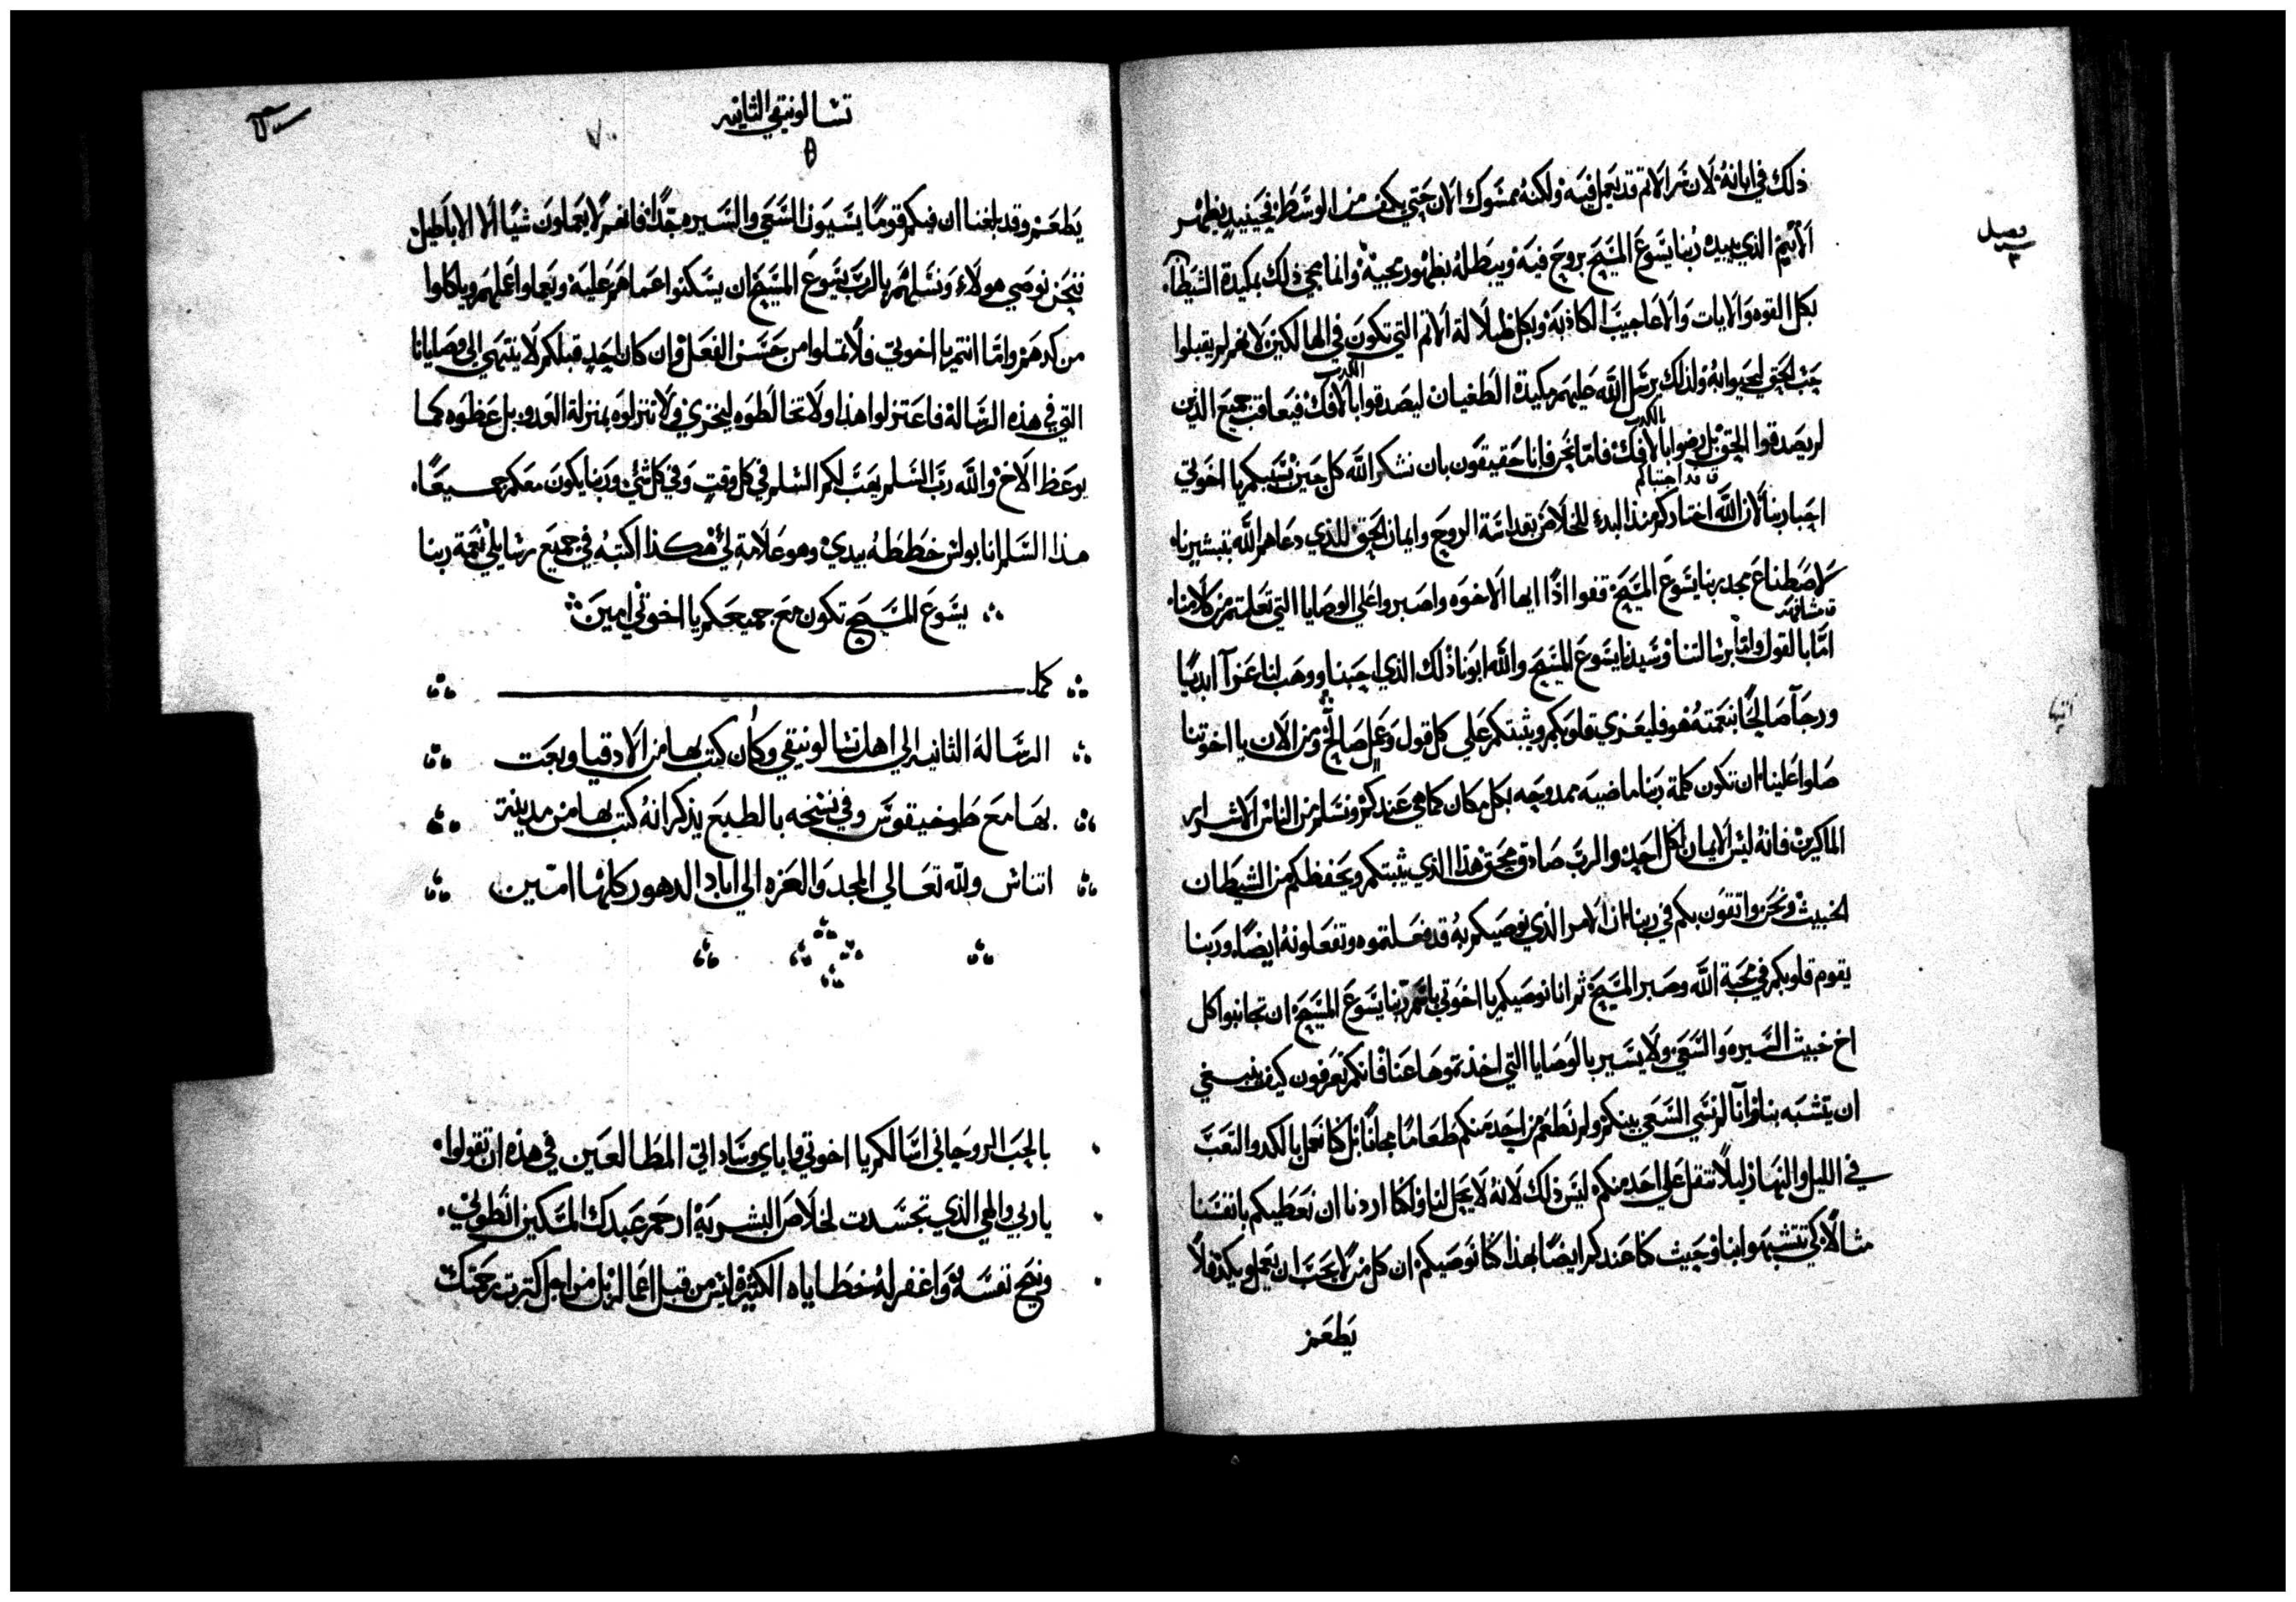 ذلك في ابانهُ لان سر الاثم قد يعمل فيه ولكنه ممسوك الان حتي يكون من الوسط فحينيد يظهر
فصل
٣
الاثيم الذي يبيده ربنا يسوع المسيح بروح فيه ويبطله بظهور مجيه وانما مجي ذلك بمكيدة الشيطان
بكل القوه والايات والاعاجيب الكاذبه وبكل ظلالة الاثم التي تكون في الهالكين لانهم لم يقبلوا
حب الحق ليحيوا به ولذلك يرسل الله عليهم مكيدة الطغيان ليصدقوا بالافك فيعاقب جميع الذين
الكدب
لم يصدقوا الحق بل رضوا بالافك فاما نحن فانا حقيقون بان نشكر الله كل حين بسببكم يا اخوتي
بالكدب
احبا ربنا لان الله اختاركم منذ البدء للخلاص بقداسة الروح وايمان الحق للذي دعاهم الله بتبشيرنا
قد اجتباكم
لاصطناع مجد ربنا يسوع المسيح قفوا اذًا ايها الاخوه واصبروا علي الوصايا التي تعلمتم من كلامنا
اما بالقول واما برسالتنا وسيدنا يسوع المسيح والله ابونا ذلك الذي احبنا ووهب لنا عزآ ابديًا
ورجآ صالحًا بنعمته هو فليعزي قلوبكم ويثبتكم علي كل قول وعمل صالح ومن الان يا اخوتنا
صلوا علينا ان تكون كلمة ربنا ماضيه ممدوحه بكل مكان كما هي عندكم ونسلم من الناس الاشرار
الماكرين فانه ليس الايمان لكل احد والرب صادق محق هذا الذي يثبتكم ويحفظكم من الشيطان
الخبيث ونحن واثقون بكم في ربنا ان الامر الذي نوصيكم به قد فعلتموه وتفعلونه ايضًا وربنا
يقوم قلوبكم في محبة الله وصبر المسيح ثم انا نوصيكم يا اخوتي باسم ربنا يسوع المسيح ان تجانبوا كل
اخ خبيث السيره والسعي ولا يسير بالوصايا التي اخذتموها عنا فانكم تعرفون كيف ينبغي
ان يتشبه بنا وانا لم نسي السعي بينكم ولم نطعم من احد منكم طعامًا مجانًا بل كنا نعمل بالكد والتعب
في الليل والنهار ليلًا نثقل علي احد منكم ليس ذلك لانه لا يحل لنا ولكنا اردنا ان نعطيكم بانفسنا
مثالًا لكي تتشبهوا بنا وحيث كنا عندكم ايضًا بهذا كنا نوصيكم ان كل من لا يحب ان يعمل ويكد فلا
يطعم
تسالونيقي الثانيه
يطعم وقد بلغنا ان فيكم قومًا يسيون السعي والسير مجدًا فانهم لا يعملون شيًا الا الاباطيل
فنحن نوصي هولاء ونسلهم بالرب يسوع المسيح ان يسكنوا عما هم عليه ويعملوا عملهم وياكلوا
من كدهم واما انتم يا اخوتي فلا تملوا من حسن الفعل وان كان احد قبلكم لا ينتهي الي وصايانا
التي في هذه الرساله فاعتزلوا هذا ولا تخالطوه ليخزي ولا تنزلوه بمنزلة العدو بل عظوه كما
يوعظ الاخ والله رب السلم يهب لكم السلم في كل وقت وفي كل شي وربنا يكون معكم جميعًا
هذا السلم انا بولس خططهُ بيدي وهو علامة لي هكذا اكتبه في جميع رسايلي نعمة ربنا
يسوع المسيح تكون مع جميعكم يا اخوتي امين
كمل
الرساله الثانيه الي اهل تسالونيقي وكان كتب بها من الادقيا وبعث
بها مع طوخيقوس وفي نسخه بالطبع يذكر انهُ كتب بها من مدينة
اتناس ولله تعالي المجد والعزه الي اباد الدهور كلها امين
بالحب الروحاني اسالكم يا اخوتي وابااي وساداتي المطالعين في هذه ان تقولوا
يا ربي والهي الذي تجسدت لخلاص البشريه ارحم عبدك المسكين انطوني
ونيح نفسه واغفر له خطاياه الكثيره ليس من قبل اعماله بل من اجل كثرت رحمتك